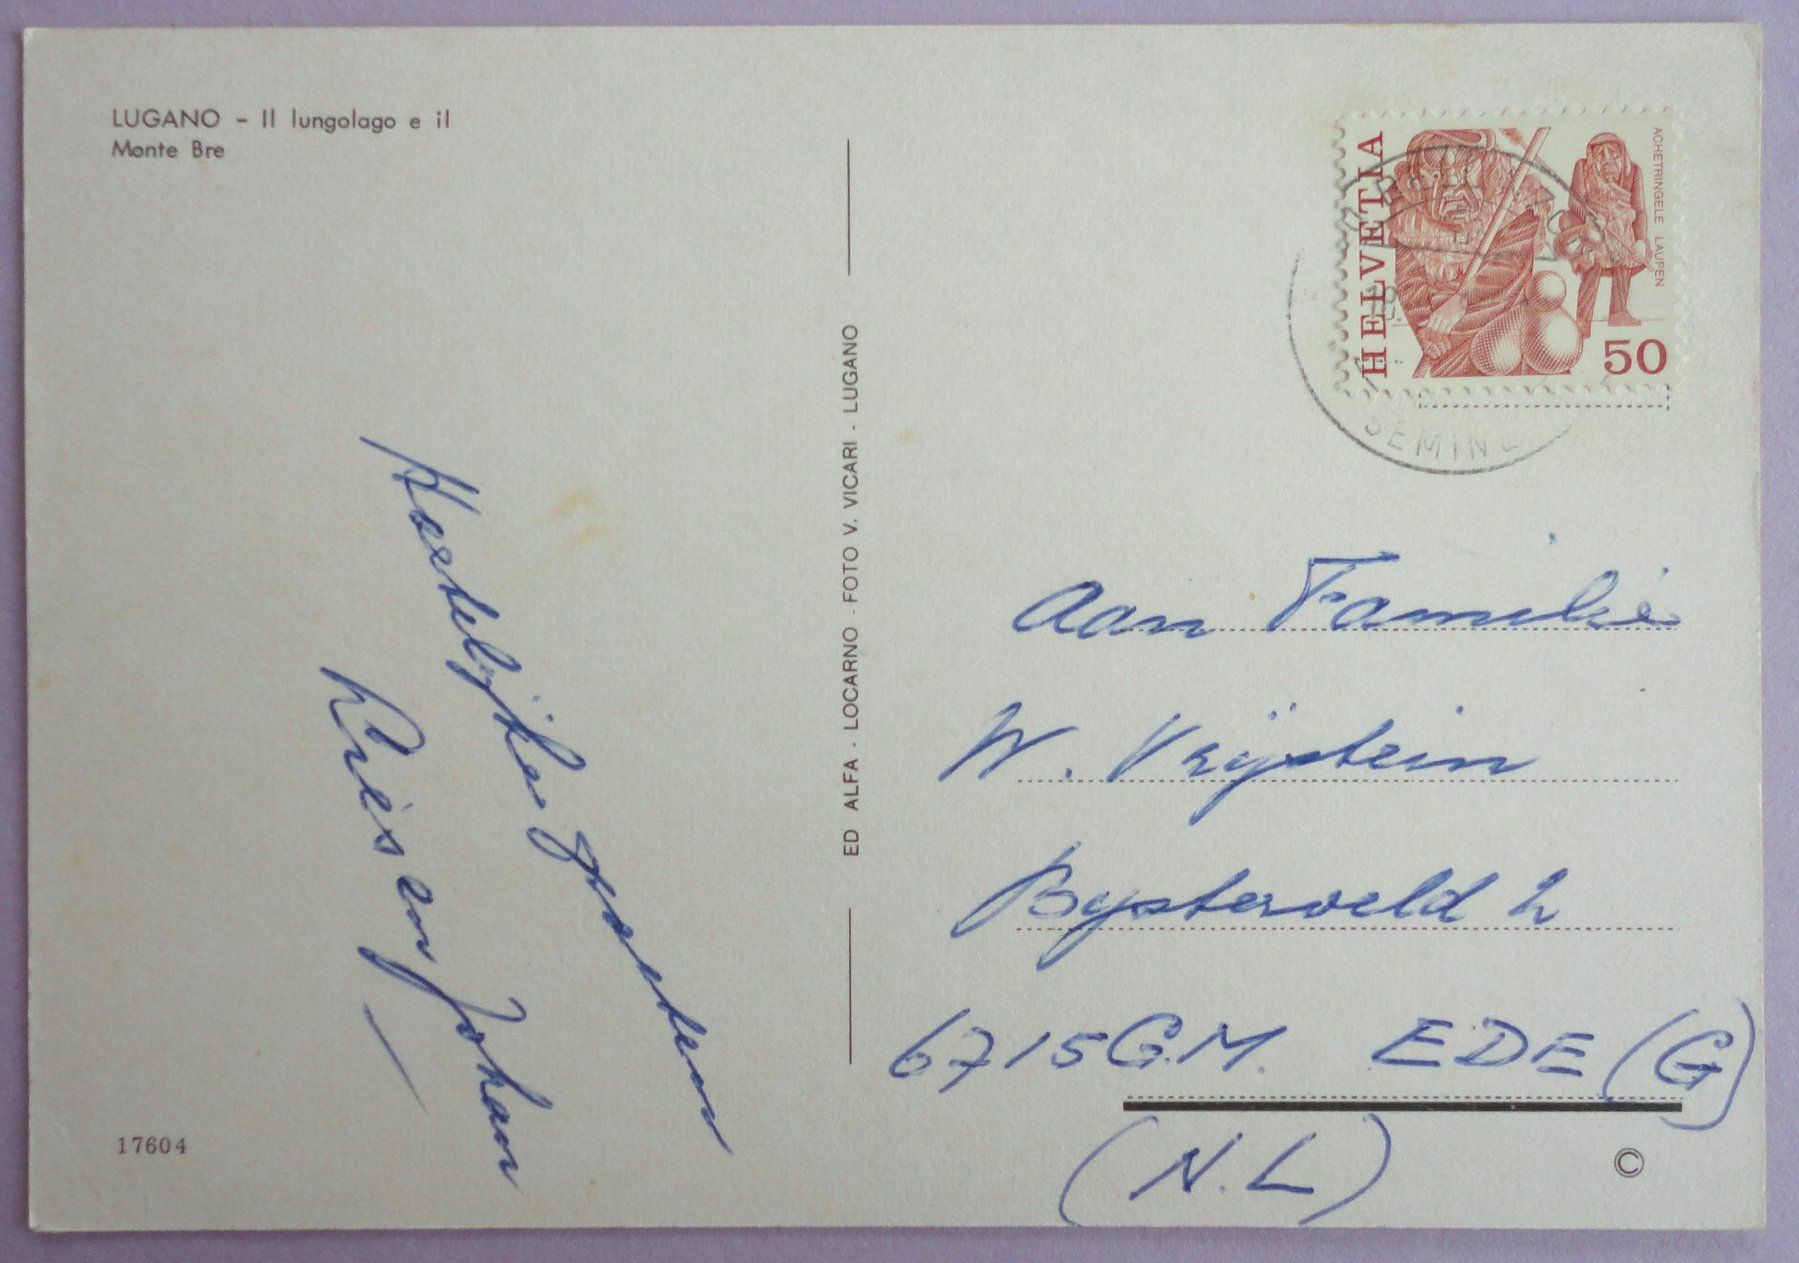 LUGANO - Il lungolago e il
Monte Bre
Hartelijke groeten
Lies en Johan
17604
ED ALFA - LOCARNO - FOTO V. VICARI - LUGANO
HELVETIA
ACHETRINGELE LAUPEN
50
Aan Familie
W. Vrijstein
Bysterveld 2
6715 G.M. EDE (G)
(N.L)
©